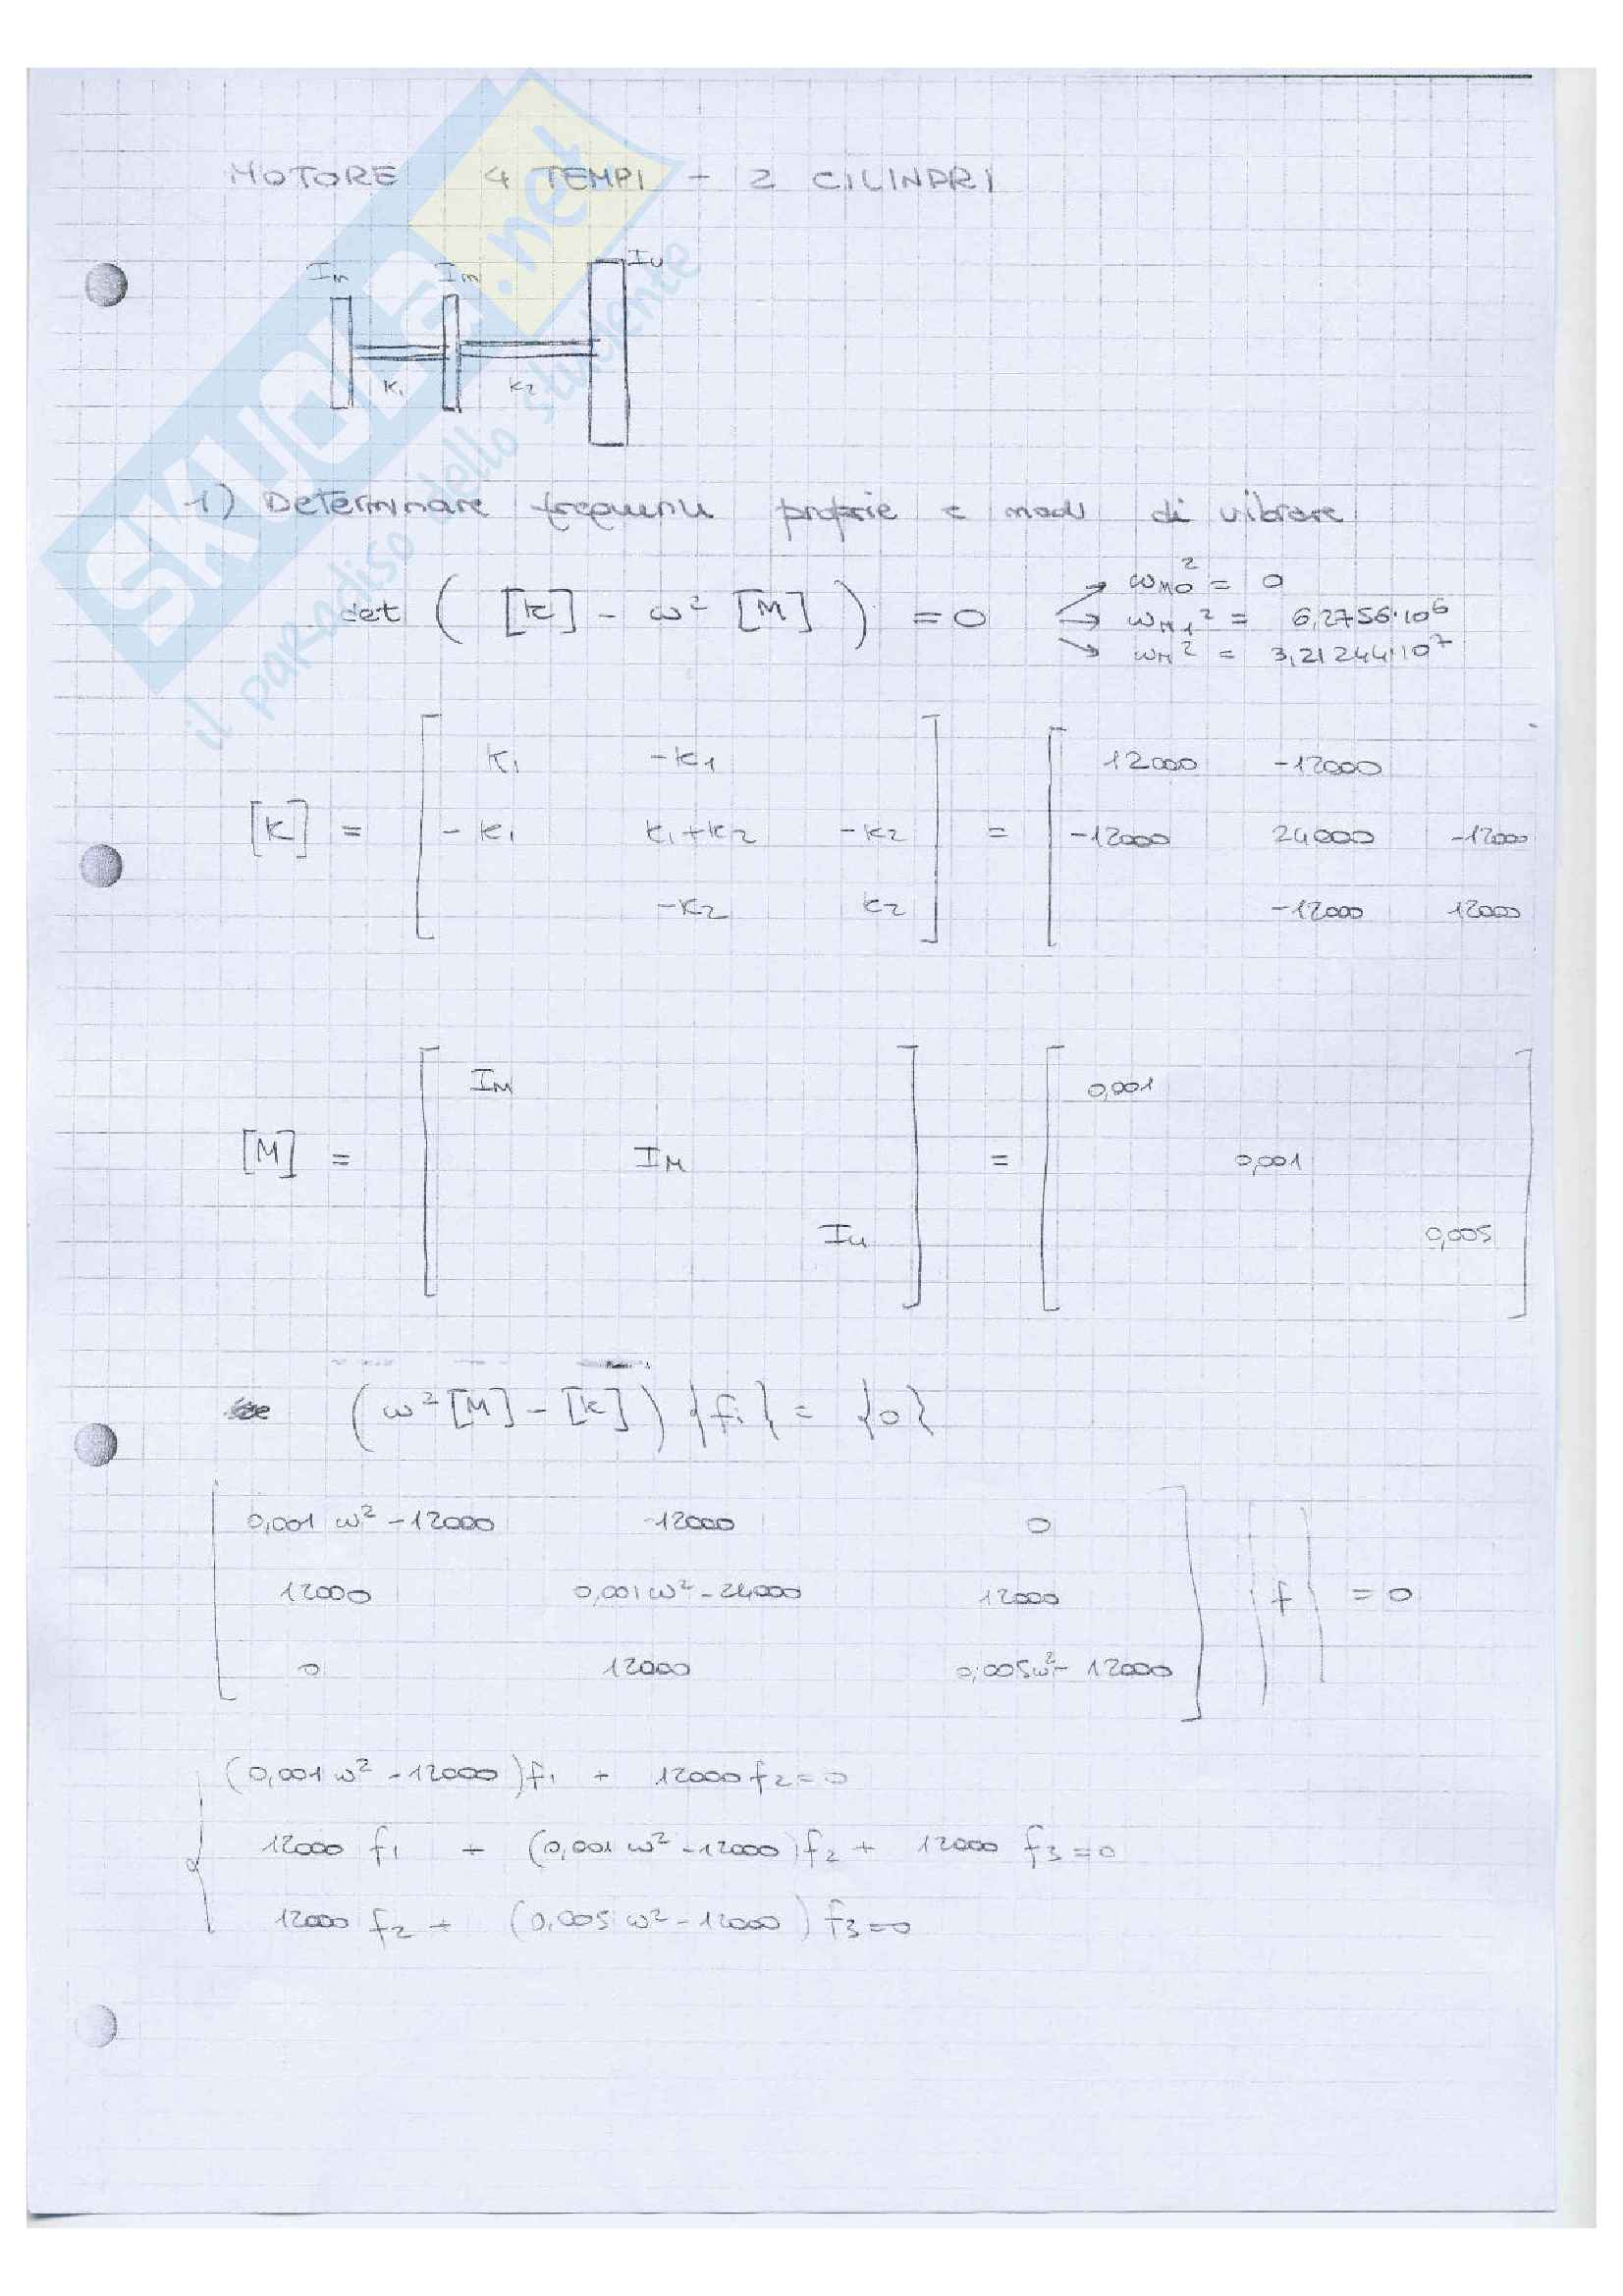 MOTORE 4 TEMPI - 2 CILINDRI
Im Im Iu
K1 K2
SKUOLA.net
il paradiso dello studente
1) Determinare frequenze proprie e modi di vibrare
det ( [K] - ω² [M] ) = 0
ωn0² = 0
ωn1² = 6,2756·10⁶
ωn² = 3,21244·10⁷
K1 -K1 12000 -12000
[K] = -K1 K1+K2 -K2 = -12000 24000 -12000
-K2 K2 -12000 12000
IM 0,001
[M] = IM = 0,001
Iu 0,005
(ω²[M] - [K]) {fi} = {0}
0,001 ω² - 12000 -12000 0
12000 0,001ω² - 24000 12000 {f} = 0
0 12000 0,005ω² - 12000
(0,001 ω² - 12000)f1 + 12000 f2 = 0
12000 f1 + (0,001 ω² - 12000)f2 + 12000 f3 = 0
12000 f2 + (0,005 ω² - 12000) f3 = 0